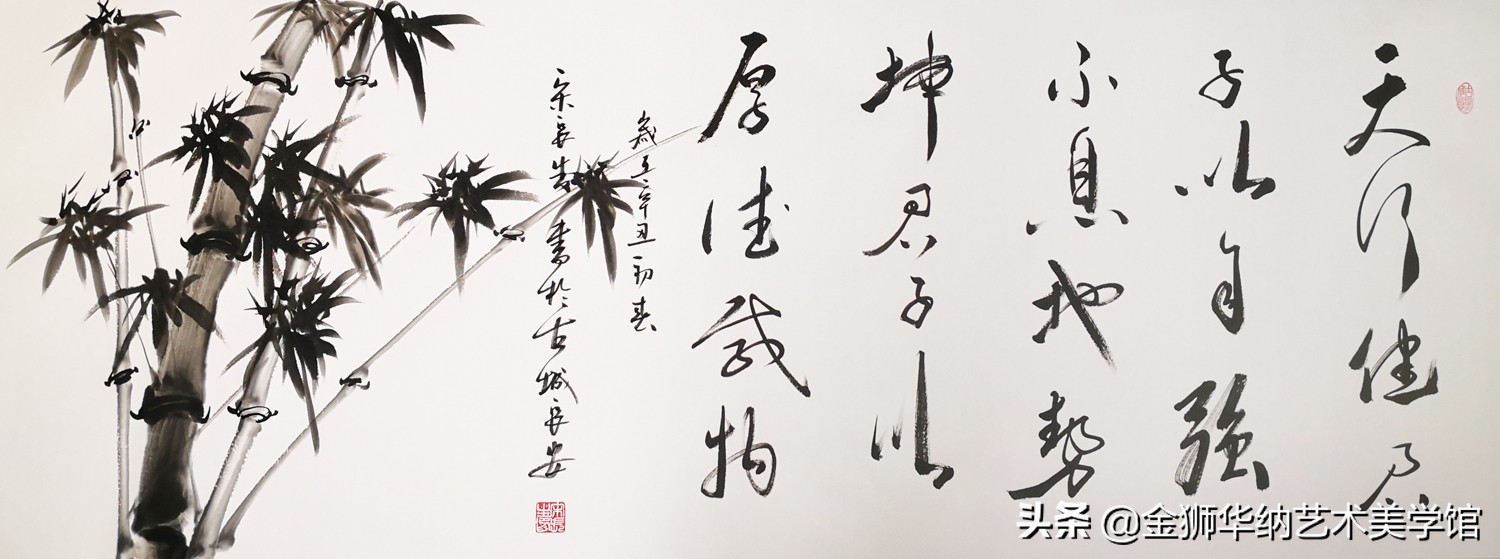 天行健君
子以自強
不息地势
坤君子以
厚德载物
岁在辛丑初春
宋长生書於古城长安
头条 @金狮华纳艺术美学馆